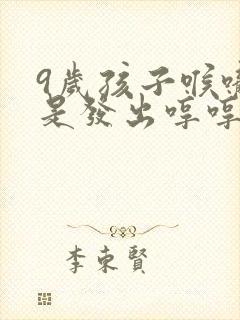 9歲孩子喉嚨
是發出哼哼
李東賢